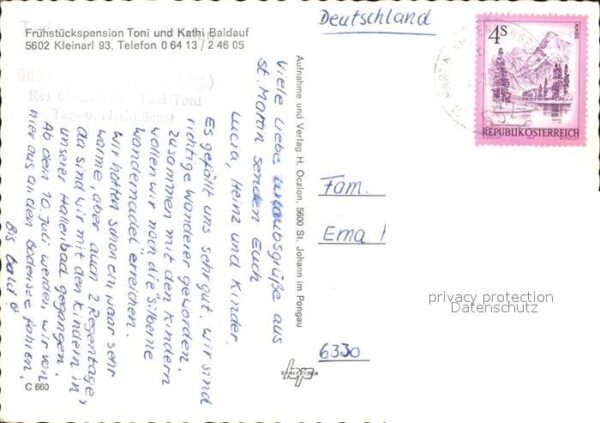 Frühstückspension Toni und Kathi Baldauf
5602 Kleinarl 93, Telefon 0 64 13 / 2 46 05
Toni
Tag- u. Nachtdienst
Viele liebe Urlaubsgrüße aus
St. Martin senden Euch
Lucia, Heinz und Kinder.
Es gefällt uns sehr gut. Wir sind
richtige Wanderer geworden.
Zusammen mit den Kindern
wollen wir noch die "Silberne
Wandernadel" erreichen.
Wir hatten schon ein paar sehr
warme, aber auch 2 Regentage
da sind wir mit den Kindern in
unserer Hallenbad gegangen.
Ab dem 10. Juli werden wir von
hier aus an den Bodensee fahren.
Bis bald
C 660
Aufnahme und Verlag H. Oczlon, 5600 St. Johann im Pongau
Deutschland
4S
REPUBLIK ÖSTERREICH
Fam.
Erna
6330
privacy protection
Datenschutz